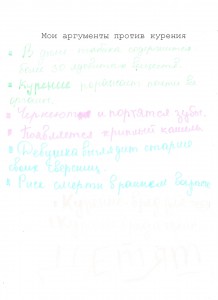 Мои аргументы против курения
В дыме табака содержится
более 30 ядовитых веществ.
Курение поражает
органы.
Чернеют и портятся зубы.
Появляется хриплый кашель.
Девушка выглядит старше
своих сверстниц.
Риск смерти в раннем возрасте